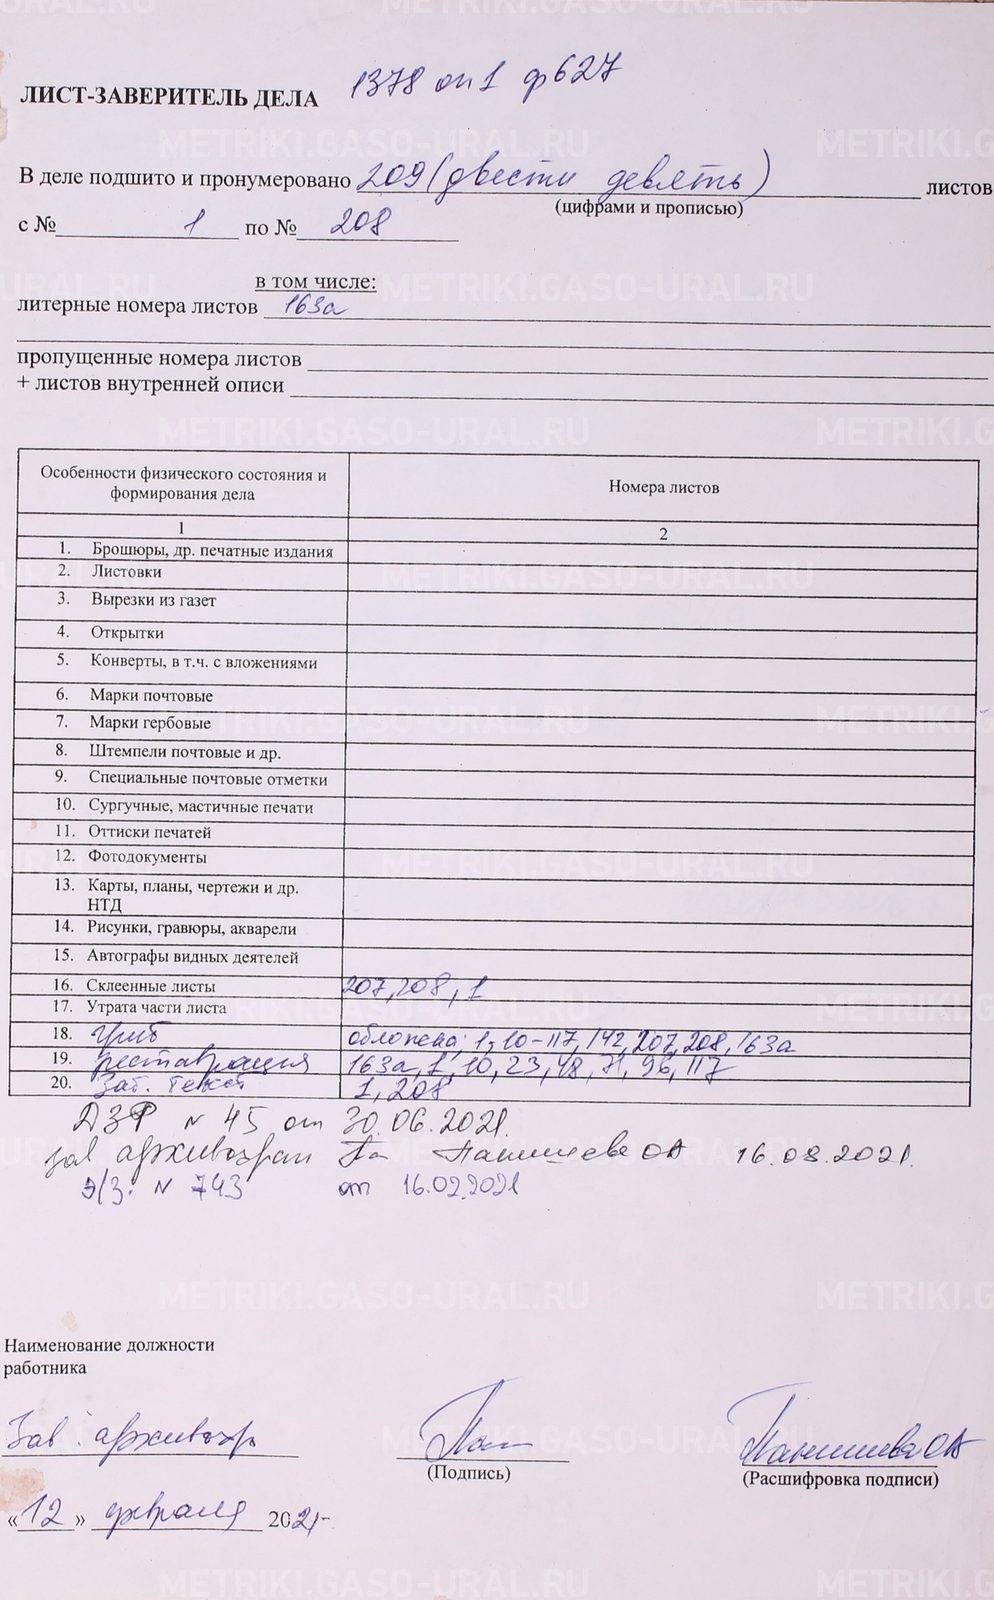 ЛИСТ-ЗАВЕРИТЕЛЬ ДЕЛА 1378 оп1 ф627
В деле подшито и пронумеровано 209 (двести девять) листов
(цифрами и прописью)
с № 1 по № 208
в том числе:
литерные номера листов 163а
пропущенные номера листов
+ листов внутренней описи
Особенности физического состояния и формирования дела Номера листов
1 2
1. Брошюры, др. печатные издания
2. Листовки
3. Вырезки из газет
4. Открытки
5. Конверты, в т.ч. с вложениями
6. Марки почтовые
7. Марки гербовые
8. Штемпели почтовые и др.
9. Специальные почтовые отметки
10. Сургучные, мастичные печати
11. Оттиски печатей
12. Фотодокументы
13. Карты, планы, чертежи и др.
НТД
14. Рисунки, гравюры, акварели
15. Автографы видных деятелей
16. Склеенные листы 207, 208, 1
17. Утрата части листа
18. Гриб обложено; 1, 10-117, 142, 207, 208, 163а
19. реставрация 163а, 1, 10, 23, 48, 71, 96, 117
20. Зат. текст 1, 208
ДЗФ N 45 от 30.06.2021.
зав архивохран Паньшева ОА 16.08.2021.
э/з. N 743 от 16.02.2021
Наименование должности
работника
Зав. архивохр
(Подпись)
Паньшева ОА
(Расшифровка подписи)
«12» февраля 2021
METRIKI.GASO-URAL.RU